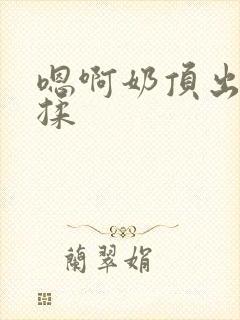 嗯啊奶頂出
揉
蘭翠娟